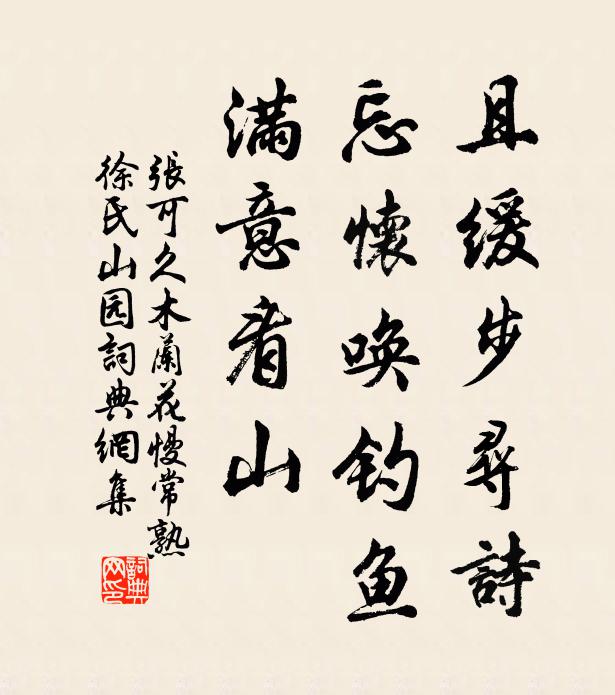 且緩步尋詩
忘懷喚钓鱼
滿意看山
張可久木蘭花慢常熟
徐氏山园詞典網集
詞典网印